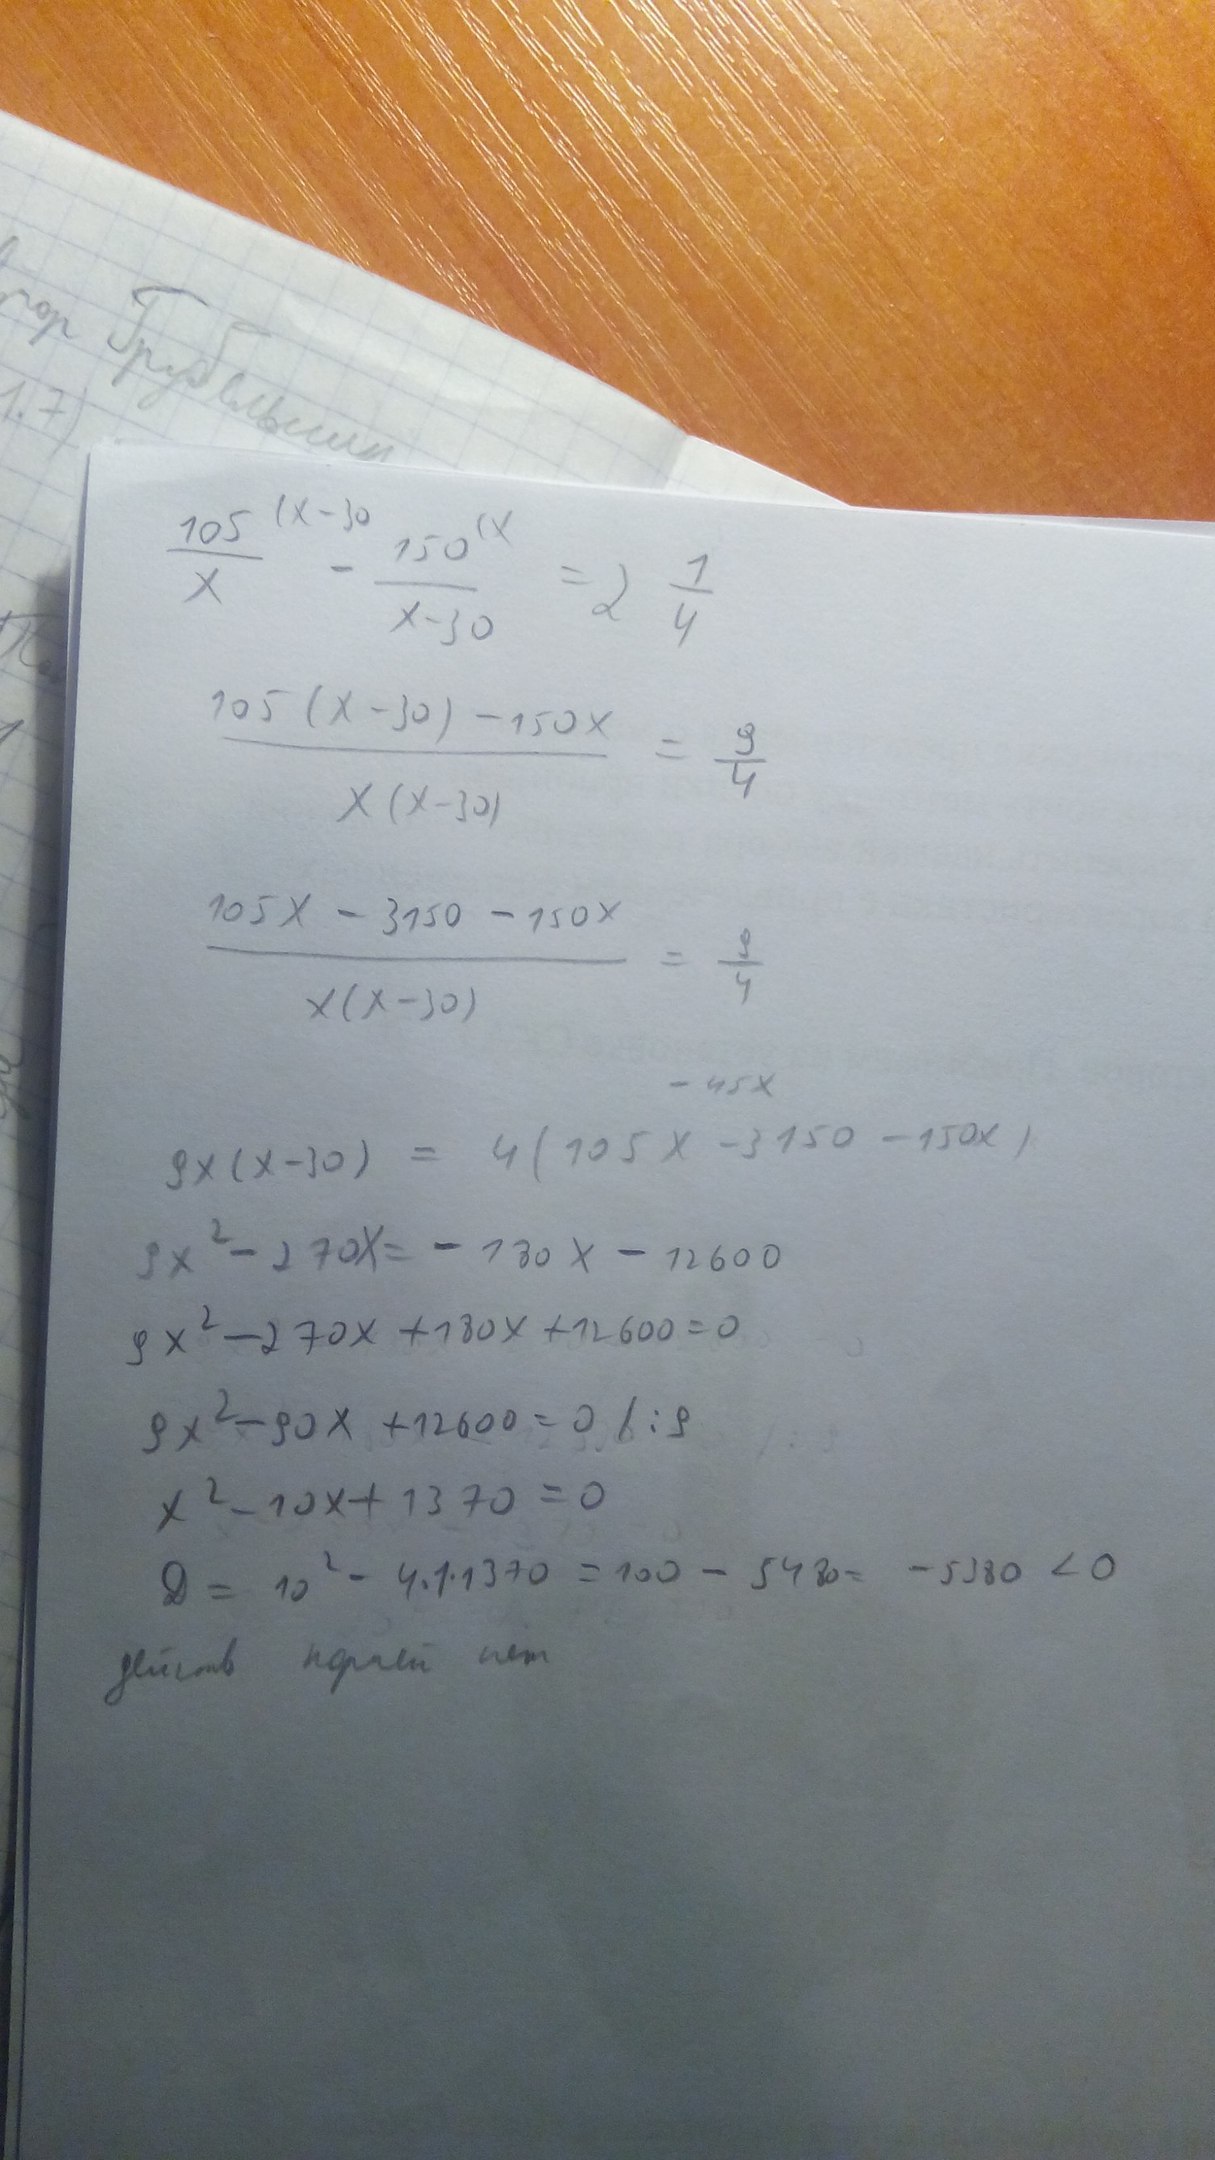 Грубельшин
1.7)
105 (x-30 / x - 150 (x / x-30 = 2 1/4
105(x-30) - 150x / x(x-30) = 9/4
105x - 3150 - 150x / x(x-30) = 9/4
-45x
9x(x-30) = 4(105x - 3150 - 150x)
9x² - 270x = - 180x - 12600
9x² - 270x + 180x + 12600 = 0
9x² - 90x + 12600 = 0 / : 9
x² - 10x + 1370 = 0
D = 10² - 4·1·1370 = 100 - 5480 = -5380 < 0
действ корней нет